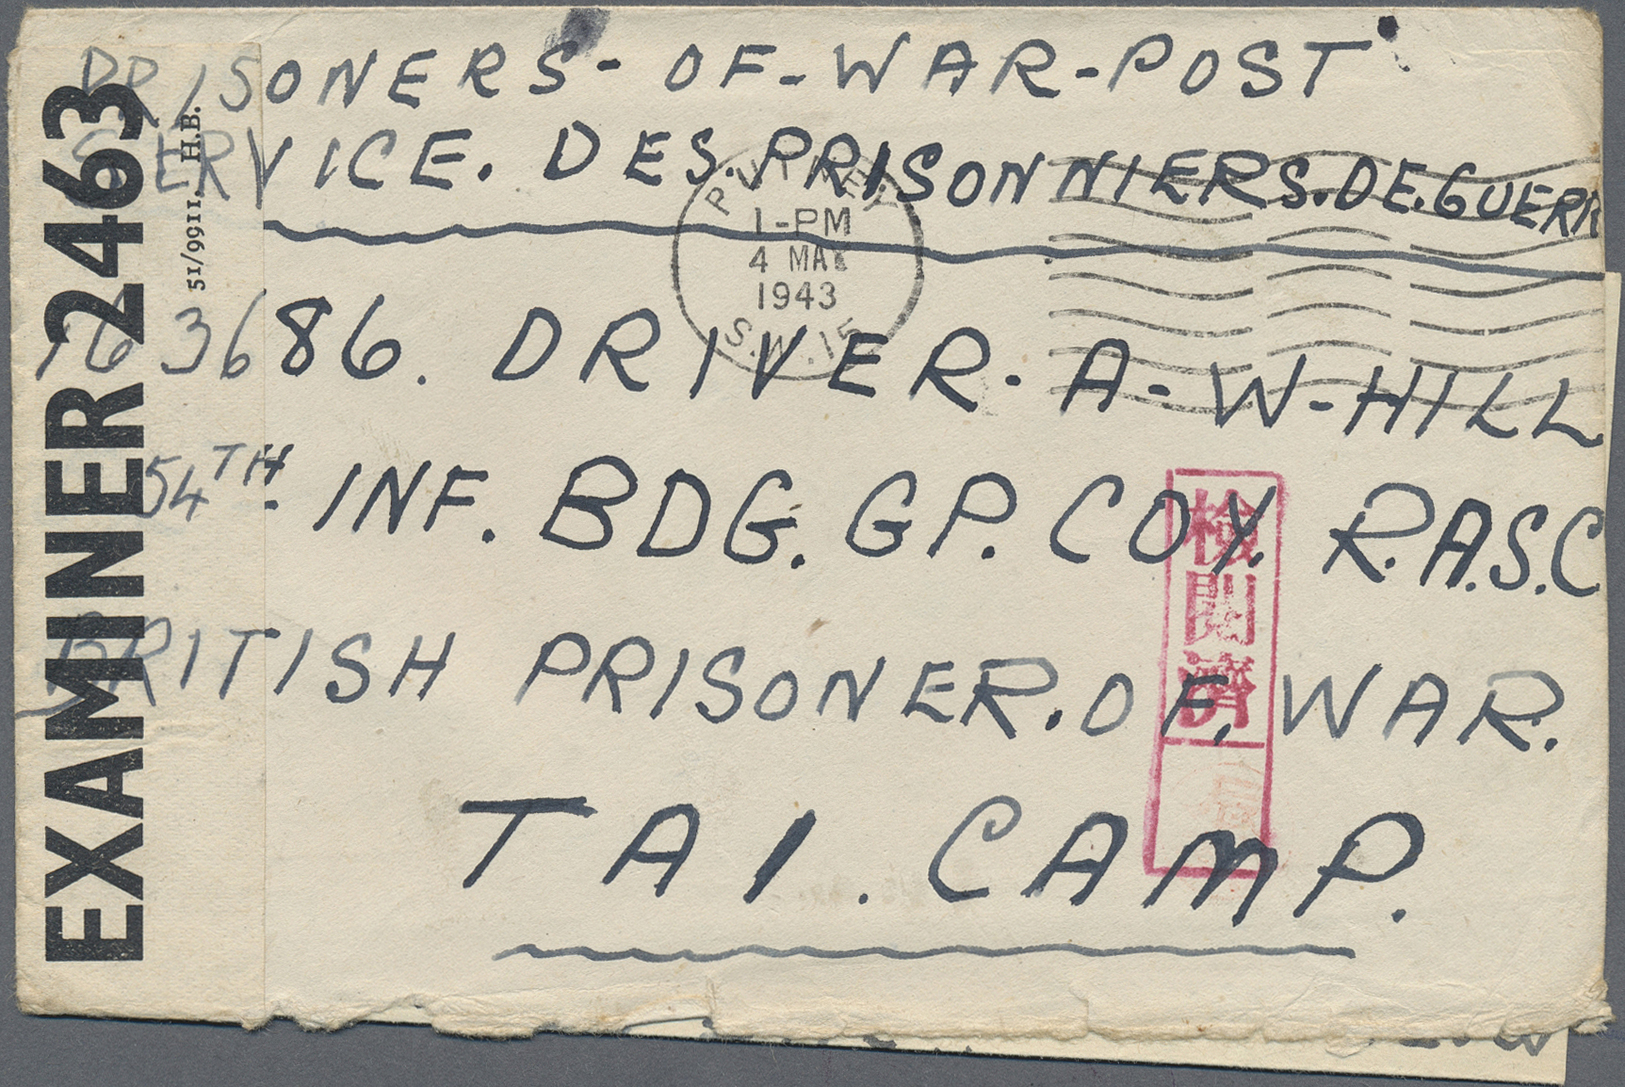 PRISONERS-OF-WAR-POST
SERVICE. DES. PRISONNIERS.DE.GUERR
PUTNEY
1-PM
4 MAR
1943
S.W.15
163686. DRIVER. A-W-HILL
54TH INF. BDG. GP. COY. R.A.S.C
BRITISH PRISONER.OF.WAR.
TAI. CAMP.
EXAMINER 2463
51/9911. H.B.
検閲済